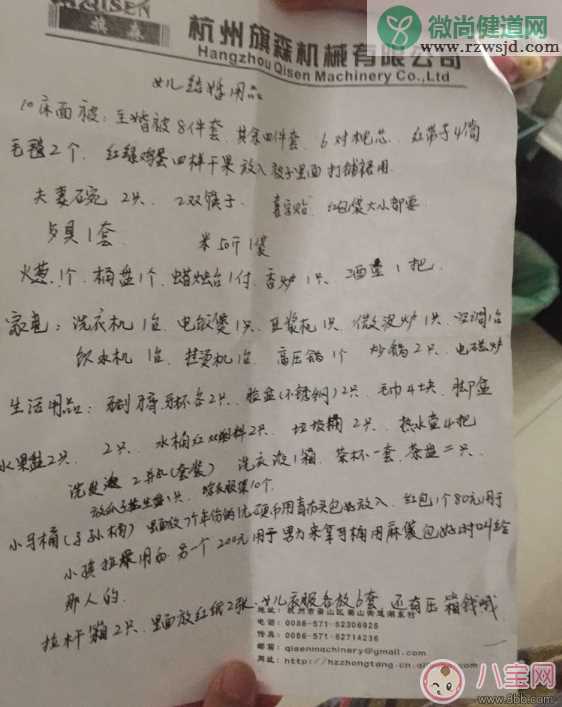 微尚健道网
www.rzwsjd.com
QISEN
旗森
杭州旗森机械有限公司
Hangzhou Qisen Machinery Co.,Ltd
女儿结婚用品
10床面被: 主婚被8件套、其余四件套、6对枕芯、红带子4筒
毛毯2个、红绿鸡蛋四样干果放入被子里面打铺裙用
夫妻碗 2只、2双筷子、喜字贴、红包袋大小都要
米50斤1袋
火葱1个、桶盘1个、蜡烛台1付、香炉1只、酒壶1把
家电: 洗衣机1台、电饭煲1只、豆浆机1只、微波炉1只、空调1台
饮水机1台、挂烫机1台、高压锅1个 炒锅2只、电磁炉
生活用品: 牙刷牙膏牙杯各2只、脸盆(不锈钢)2只、毛巾4块、脚盆
水果盘2只、2只、水桶红双塑料2只、垃圾桶2只、热水壶4把
洗发液2瓶(套装) 洗衣液1箱、茶杯一套、茶盘二只
小马桶(子孙桶)
红包1个80元用于
小孩拉尿用的 另一个200元用于男方来拿马桶用麻袋包好时叫给
那人的.
拉杆箱2只、里面放红纸2张、女儿衣服各放6套 还有压箱钱哦
电话: 0086-571-82306928
传真: 0086-571-82714236
邮箱: qisenmachinery@gmail.com
网址: http://hzzhongtang.cn.
八宝网
www.8bb.com